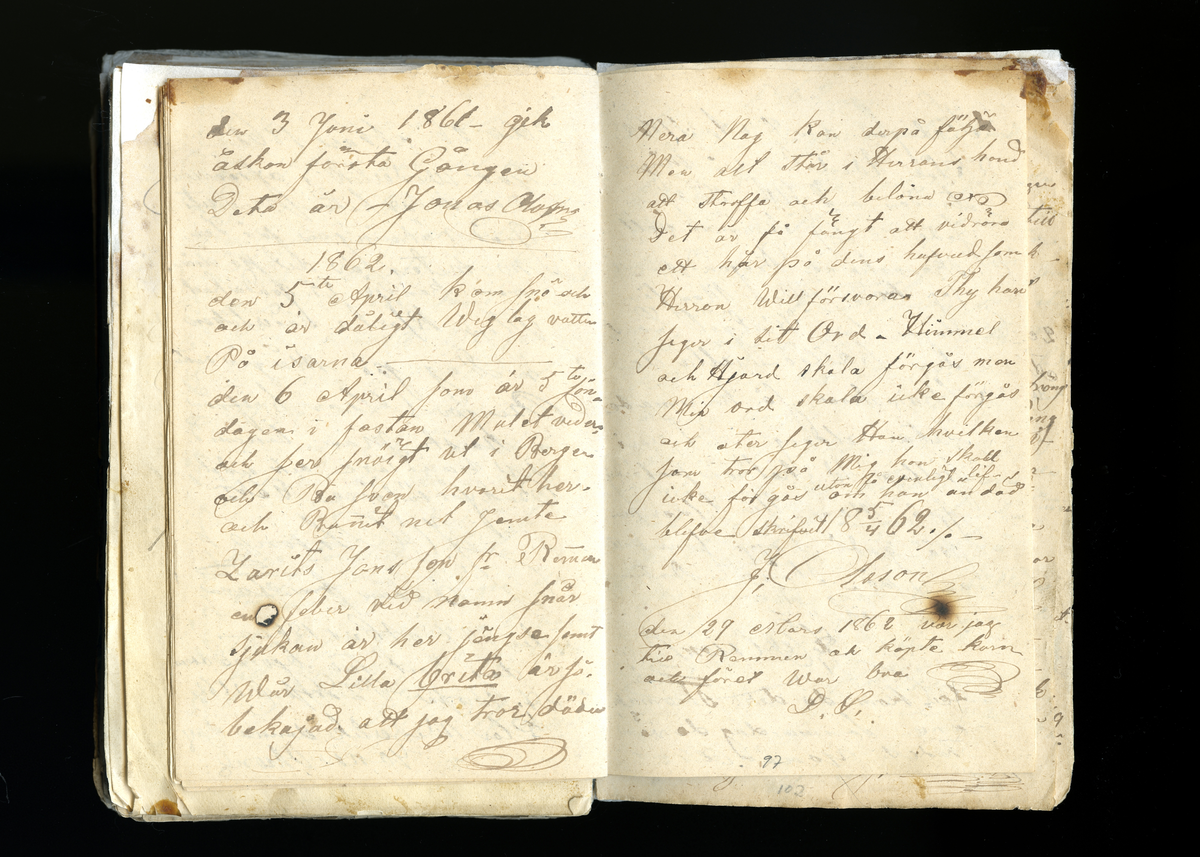 den 3 Juni 1861 – gik
åskan första Gången
Deta är – Jonas
1862.
den 5te April kom snö och
och är dåligt Weglag vatten
På isarna
den 6 April som är 5te sön-
dagen i fastan Mulet veder
och ser snöigt ut i Bergen
och Per Sven hvarit her
och
Larits Jonsson fr Remman
en feber vid namn snår
sjukan är her gängse samt
Wår Lilla Brita är så
bekajad att jag tror döden
Nera Nog kan derpå följa
Men alt står i Herrans hand
att straffa och belöna
Det är så långt att vidröra
ett hår på dens hufvud som
Herran Will försvara Thy han
seger i sit Ord – Himmel
och Hjård skala förgås men
Min ord skala icke förgås
och åter seger Han hvilken
som tror på Mig han skall
utan få evinnligt lif
icke förgås om han än död
blefve skrefvit 18 5/4 62 ./. –
J, Olsson
den 29 Mars 1862 var jag
till Remmen ok köpte korn
och föret War bra
P. O.
97
102